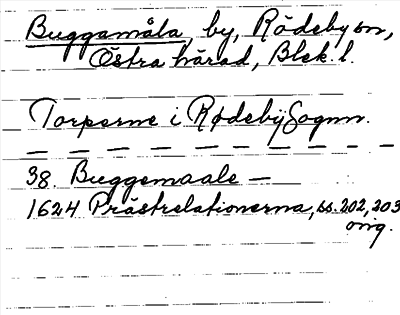 Buggamåla, by, Rödeby sn,
Östra härad, Blek. l.
Torperne i Rødebÿ Sognn.
38. Buggemaale —
1624 Prästrelationerna, ss. 202, 203
orig.